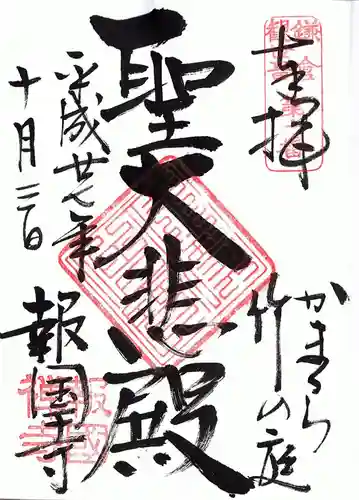 奉拝
かまくら
竹の庭
聖大悲殿
平成廿七年
十月三日
報国寺